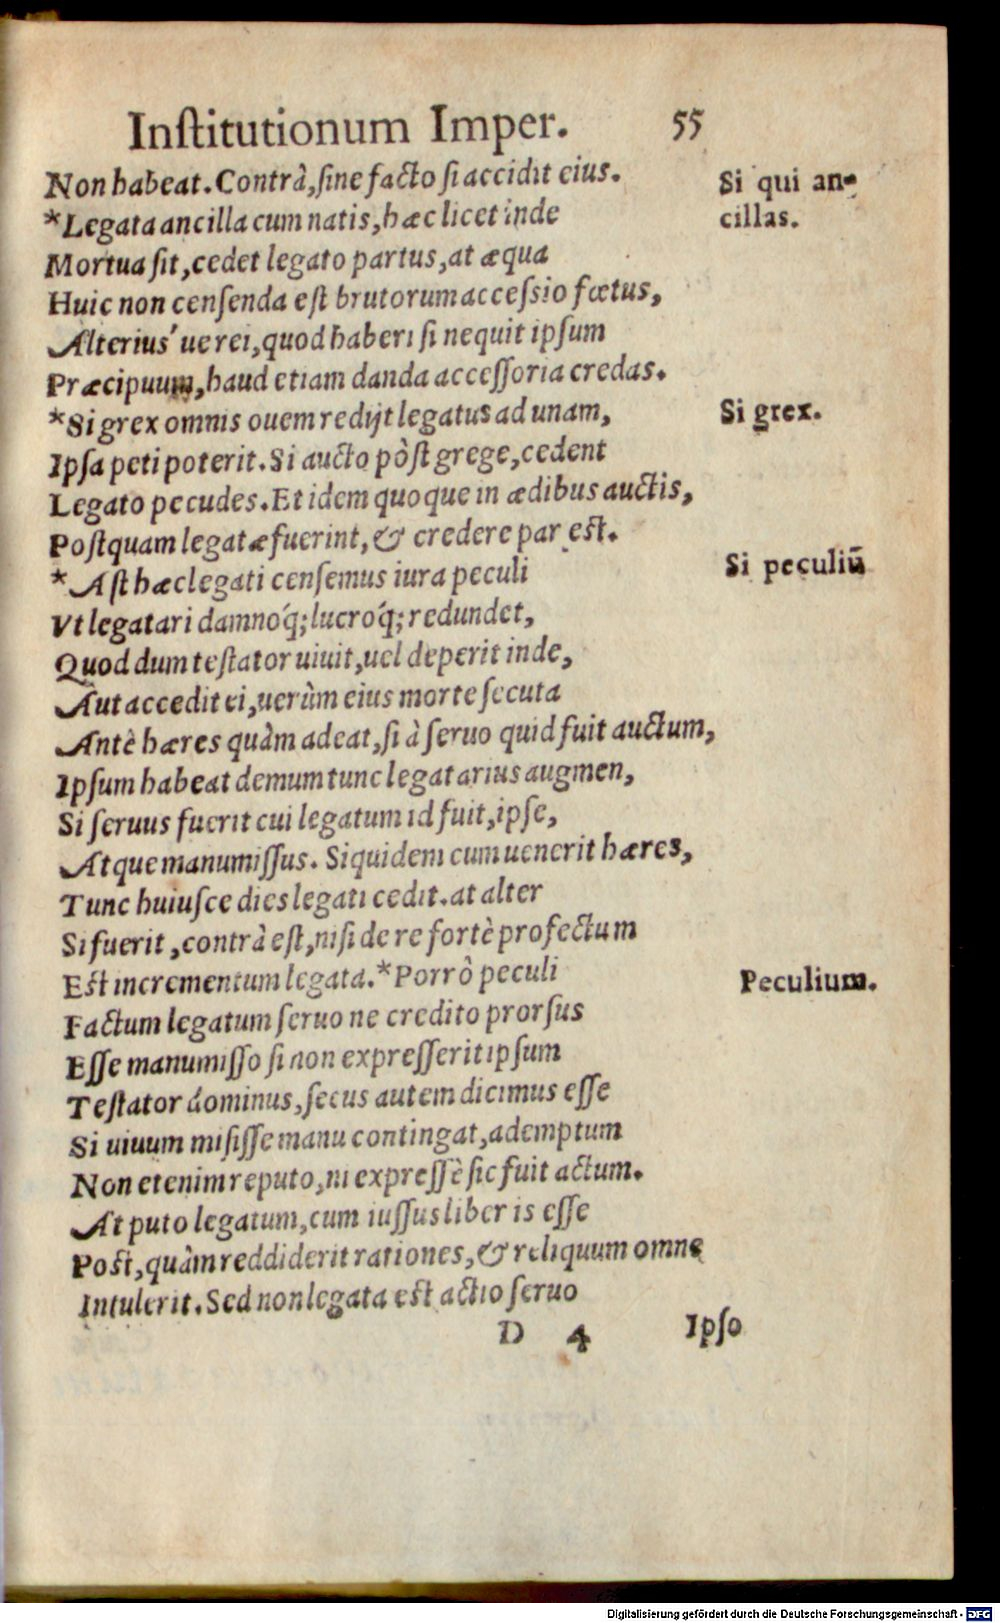 Institutionum Imper. 55
Non habeat. Contrà, sine facto si accidit eius.
Si qui an-
cillas.
*Legata ancilla cum natis, hæc licet inde
Mortua sit, cedet legato partus, at æqua
Huic non censenda est brutorum accessio fœtus,
Alterius´ ue rei, quod haberi si nequit ipsum
Præcipuum, haud etiam danda accessoria credas.
*Si grex omnis ouem redijt legatus ad unam,
Si grex.
Ipsa peti poterit. Si aucto pòst grege, cedent
Legato pecudes. Et idem quoque in ædibus auctis,
Postquam legatæ fuerint, & credere par est.
*Ast hæc legati censemus iura peculi
Si peculiū
Vt legatari damnoq́; lucroq́; redundet,
Quod dum testator uiuit, uel deperit inde,
Aut accedit ei, uerùm eius morte secuta
Antè hæres quàm adeat, si à seruo quid fuit auctum,
Ipsum habeat demum tunc legatarius augmen,
Si seruus fuerit cui legatum id fuit, ipse,
Atque manumissus. Siquidem cum uenerit hæres,
Tunc huiusce dies legati cedit. at alter
Si fuerit, contrà est, nisi de re fortè profectum
Est incrementum legata. *Porrò peculi
Peculium.
Factum legatum seruo ne credito prorsus
Esse manumisso si non expresserit ipsum
Testator dominus, secus autem dicimus esse
Si uiuum misisse manu contingat, ademptum
Non etenim reputo, ni expressè sic fuit actum.
At puto legatum, cum iussus liber is esse
Post, quàm reddiderit rationes, & reliquum omne
Intulerit. Sed non legata est actio seruo
D 4 Ipso
Digitalisierung gefördert durch die Deutsche Forschungsgemeinschaft - DFG